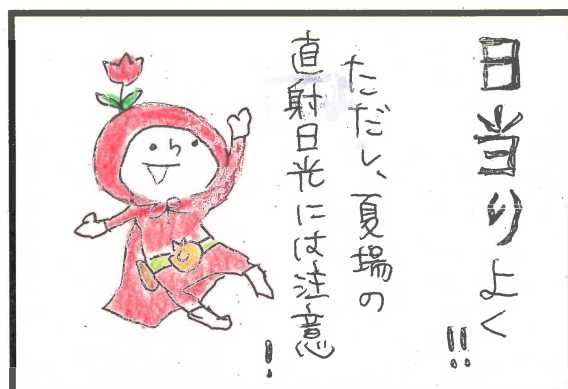 日当りよく!!
ただし、夏場の
直射日光には注意!